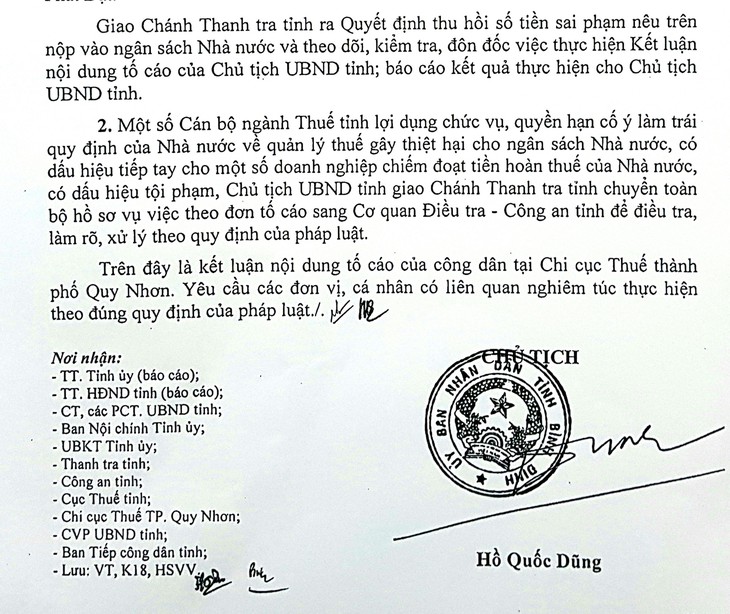 Giao Chánh Thanh tra tỉnh ra Quyết định thu hồi số tiền sai phạm nêu trên
nộp vào ngân sách Nhà nước và theo dõi, kiểm tra, đôn đốc việc thực hiện Kết luận
nội dung tố cáo của Chủ tịch UBND tỉnh; báo cáo kết quả thực hiện cho Chủ tịch
UBND tỉnh.
2. Một số Cán bộ ngành Thuế tỉnh lợi dụng chức vụ, quyền hạn cố ý làm trái
quy định của Nhà nước về quản lý thuế gây thiệt hại cho ngân sách Nhà nước, có
dấu hiệu tiếp tay cho một số doanh nghiệp chiếm đoạt tiền hoàn thuế của Nhà nước,
có dấu hiệu tội phạm, Chủ tịch UBND tỉnh giao Chánh Thanh tra tỉnh chuyển toàn
bộ hồ sơ vụ việc theo đơn tố cáo sang Cơ quan Điều tra - Công an tỉnh để điều tra,
làm rõ, xử lý theo quy định của pháp luật.
Trên đây là kết luận nội dung tố cáo của công dân tại Chi cục Thuế thành
phố Quy Nhơn. Yêu cầu các đơn vị, cá nhân có liên quan nghiêm túc thực hiện
theo đúng quy định của pháp luật./.
Nơi nhận:
- TT. Tỉnh ủy (báo cáo);
- TT. HĐND tỉnh (báo cáo);
- CT, các PCT. UBND tỉnh;
- Ban Nội chính Tỉnh ủy;
- UBKT Tỉnh ủy;
- Thanh tra tỉnh;
- Công an tỉnh;
- Cục Thuế tỉnh;
- Chi cục Thuế TP. Quy Nhơn;
- CVP UBND tỉnh;
- Ban Tiếp công dân tỉnh;
- Lưu: VT, K18, HSVV.
CHỦ TỊCH
ỦY BAN NHÂN DÂN TỈNH BÌNH ĐỊNH
Hồ Quốc Dũng